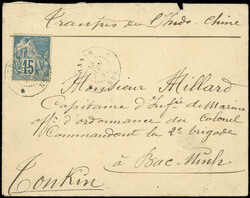 Troupes de l'Indo-Chine
15
Monsieur Millard
Capitaine d'Inf.ie de Marine
off. d'ordonnance du Colonel
Commandant la 2e brigade
à Bac-Ninh
Tonkin